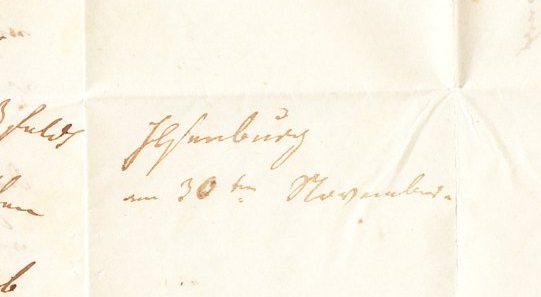 Ilsenburg
am 30ten November.